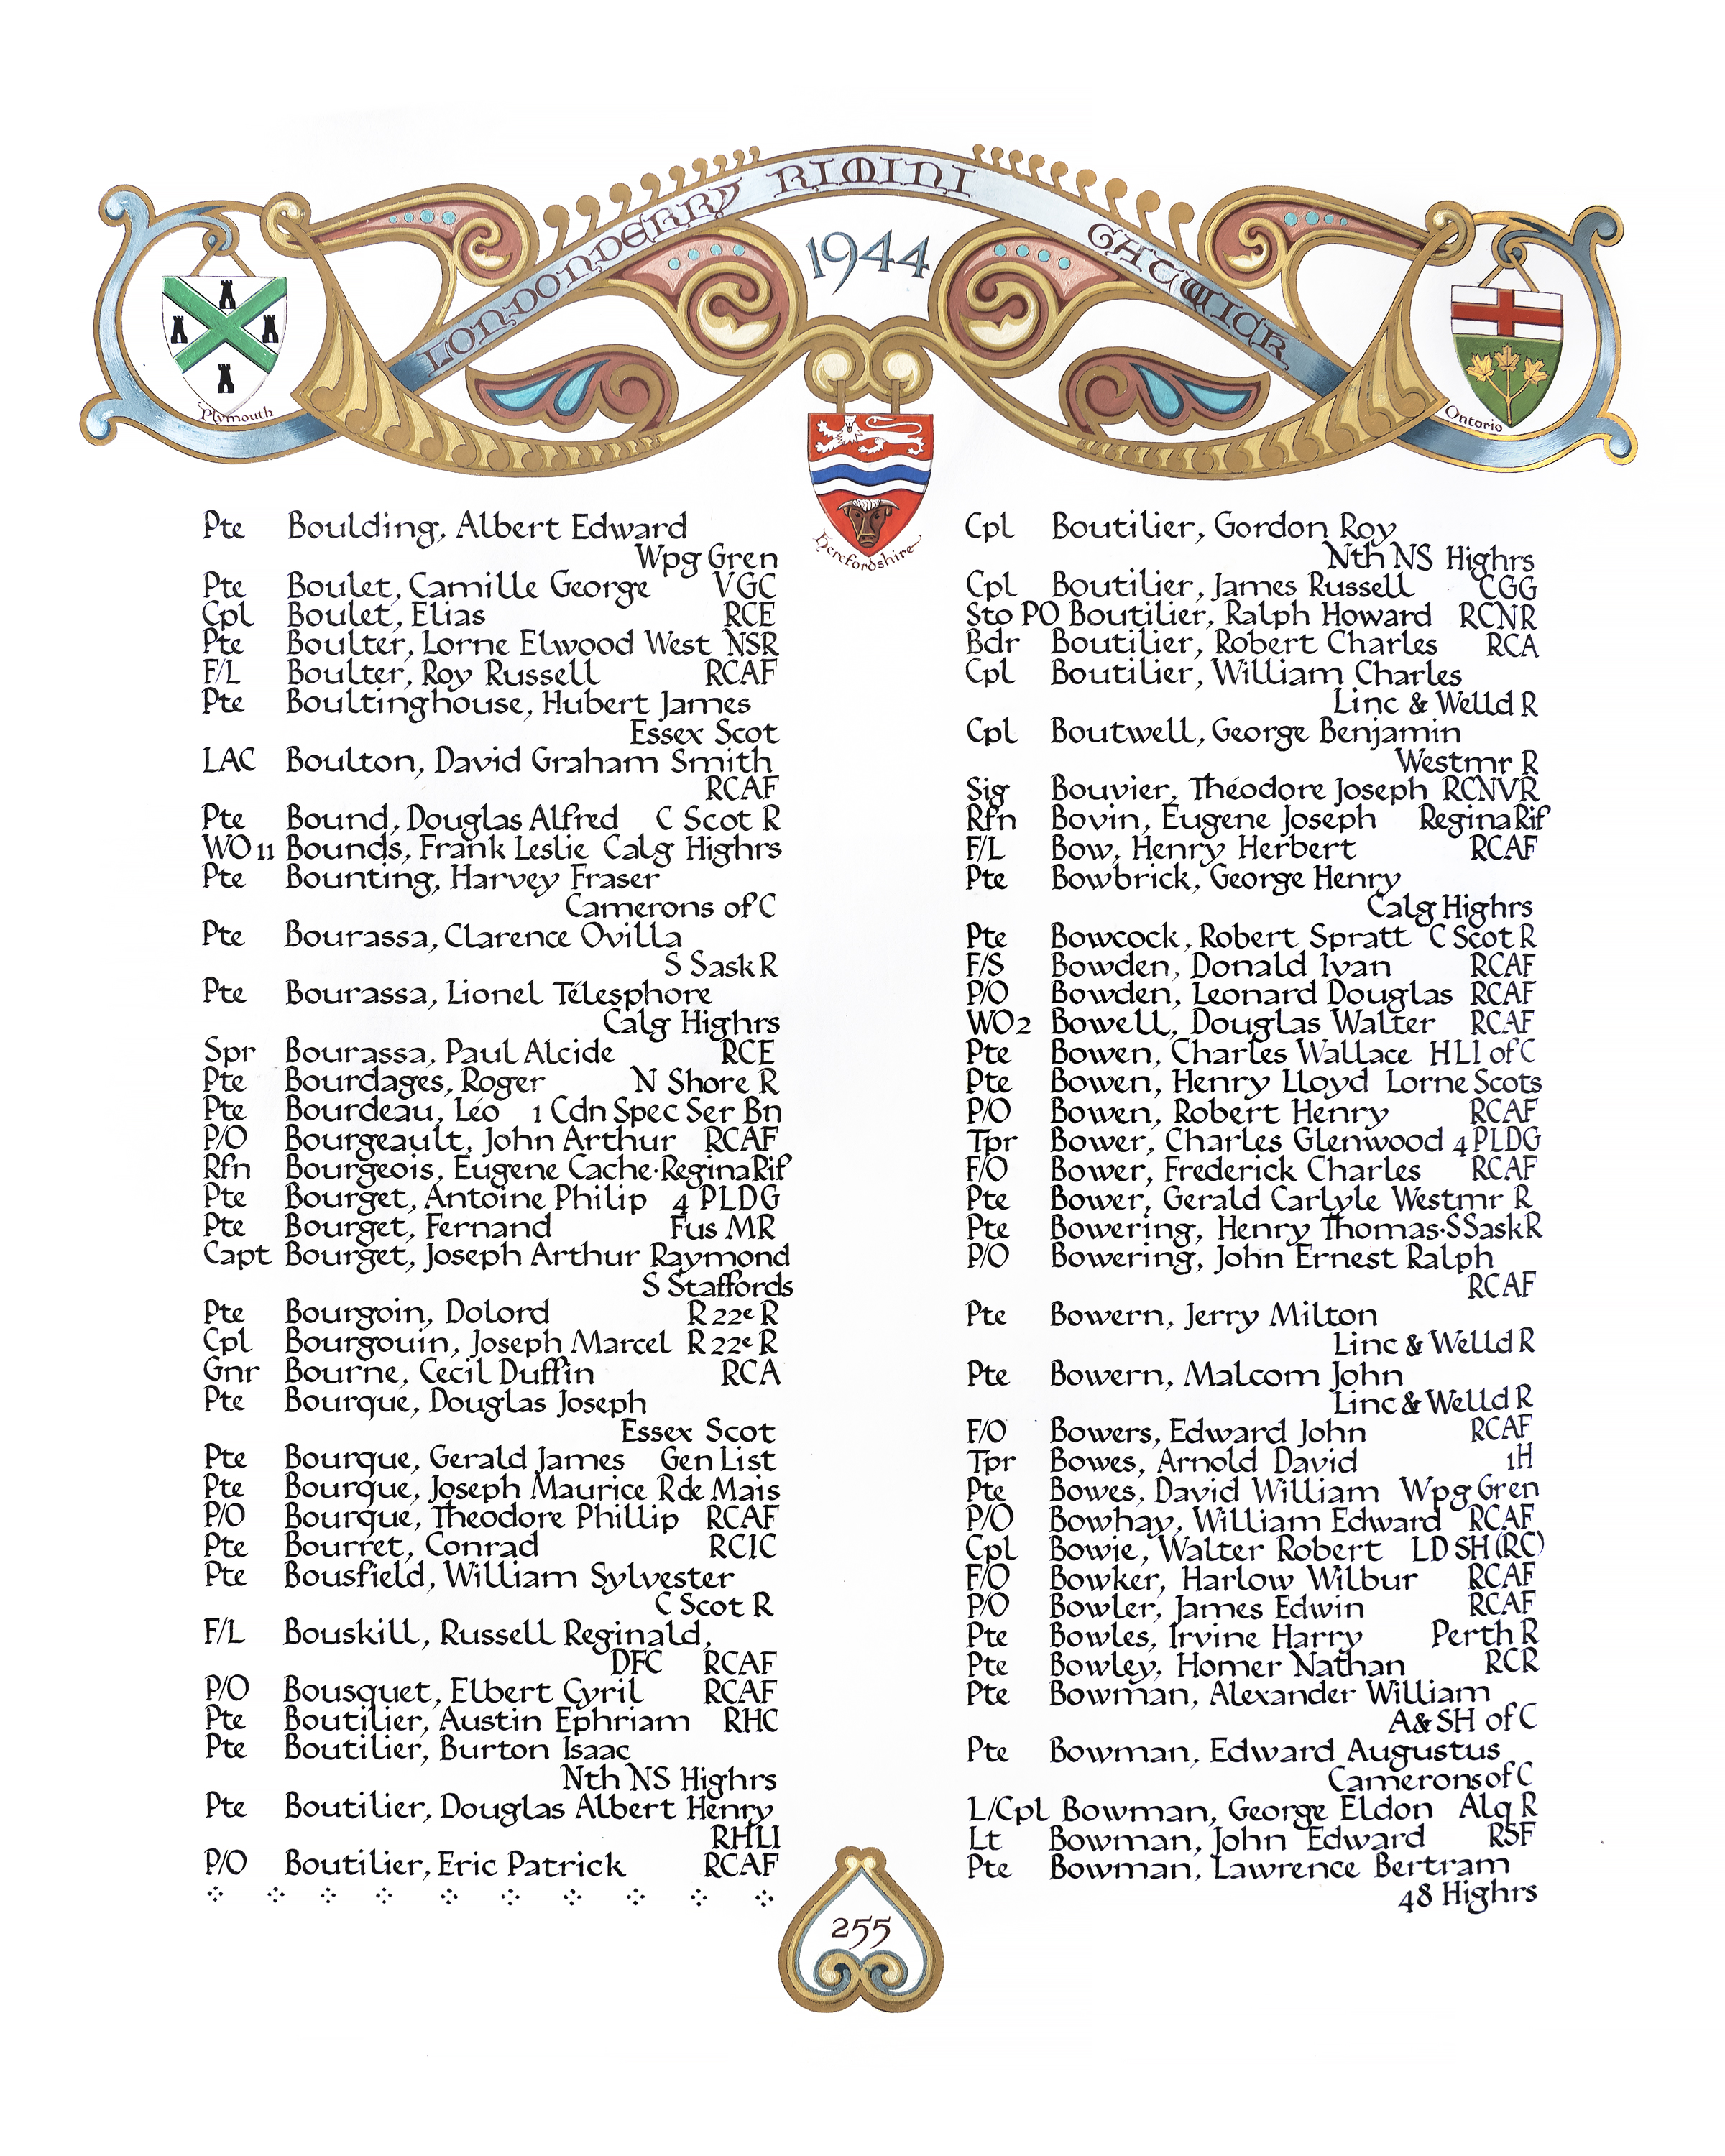 LONDONDERRY RIMINI GATWICK
1944
Plymouth
Ontario
Herefordshire
Pte Boulding, Albert Edward
Wpg Gren
Pte Boulet, Camille George VGC
Cpl Boulet, Elias RCE
Pte Boulter, Lorne Elwood West NSR
F/L Boulter, Roy Russell RCAF
Pte Boultinghouse, Hubert James
Essex Scot
LAC Boulton, David Graham Smith
RCAF
Pte Bound, Douglas Alfred C Scot R
WO11 Bounds, Frank Leslie Calg Highrs
Pte Bounting, Harvey Fraser
Camerons of C
Pte Bourassa, Clarence Ovilla
S Sask R
Pte Bourassa, Lionel Télesphore
Calg Highrs
Spr Bourassa, Paul Alcide RCE
Pte Bourdages, Roger N Shore R
Pte Bourdeau, Léo 1 Cdn Spec Ser Bn
P/O Bourgeault, John Arthur RCAF
Rfn Bourgeois, Eugene Cache·Regina Rif
Pte Bourget, Antoine Philip 4 PLDG
Pte Bourget, Fernand Fus MR
Capt Bourget, Joseph Arthur Raymond
S Staffords
Pte Bourgoin, Dolord R 22e R
Cpl Bourgouin, Joseph Marcel R 22e R
Gnr Bourne, Cecil Duffin RCA
Pte Bourque, Douglas Joseph
Essex Scot
Pte Bourque, Gerald James Gen List
Pte Bourque, Joseph Maurice R de Mais
P/O Bourque, Theodore Phillip RCAF
Pte Bourret, Conrad RCIC
Pte Bousfield, William Sylvester
C Scot R
F/L Bouskill, Russell Reginald,
DFC RCAF
P/O Bousquet, Elbert Cyril RCAF
Pte Boutilier, Austin Ephriam RHC
Pte Boutilier, Burton Isaac
Nth NS Highrs
Pte Boutilier, Douglas Albert Henry
RHLI
P/O Boutilier, Eric Patrick RCAF
Cpl Boutilier, Gordon Roy
Nth NS Highrs
Cpl Boutilier, James Russell CGG
Sto PO Boutilier, Ralph Howard RCNR
Bdr Boutilier, Robert Charles RCA
Cpl Boutilier, William Charles
Linc & Welld R
Cpl Boutwell, George Benjamin
Westmr R
Sig Bouvier, Théodore Joseph RCNVR
Rfn Bovin, Eugene Joseph Regina Rif
F/L Bow, Henry Herbert RCAF
Pte Bowbrick, George Henry
Calg Highrs
Pte Bowcock, Robert Spratt C Scot R
F/S Bowden, Donald Ivan RCAF
P/O Bowden, Leonard Douglas RCAF
WO2 Bowell, Douglas Walter RCAF
Pte Bowen, Charles Wallace HLI of C
Pte Bowen, Henry Lloyd Lorne Scots
P/O Bowen, Robert Henry RCAF
Tpr Bower, Charles Glenwood 4 PLDG
F/O Bower, Frederick Charles RCAF
Pte Bower, Gerald Carlyle Westmr R
Pte Bowering, Henry Thomas·S Sask R
P/O Bowering, John Ernest Ralph
RCAF
Pte Bowern, Jerry Milton
Linc & Welld R
Pte Bowern, Malcom John
Linc & Welld R
F/O Bowers, Edward John RCAF
Tpr Bowes, Arnold David 1H
Pte Bowes, David William Wpg Gren
P/O Bowhay, William Edward RCAF
Cpl Bowie, Walter Robert LD SH (RC)
F/O Bowker, Harlow Wilbur RCAF
P/O Bowler, James Edwin RCAF
Pte Bowles, Irvine Harry Perth R
Pte Bowley, Homer Nathan RCR
Pte Bowman, Alexander William
A & SH of C
Pte Bowman, Edward Augustus
Camerons of C
L/Cpl Bowman, George Eldon Alq R
Lt Bowman, John Edward RSF
Pte Bowman, Lawrence Bertram
48 Highrs
255